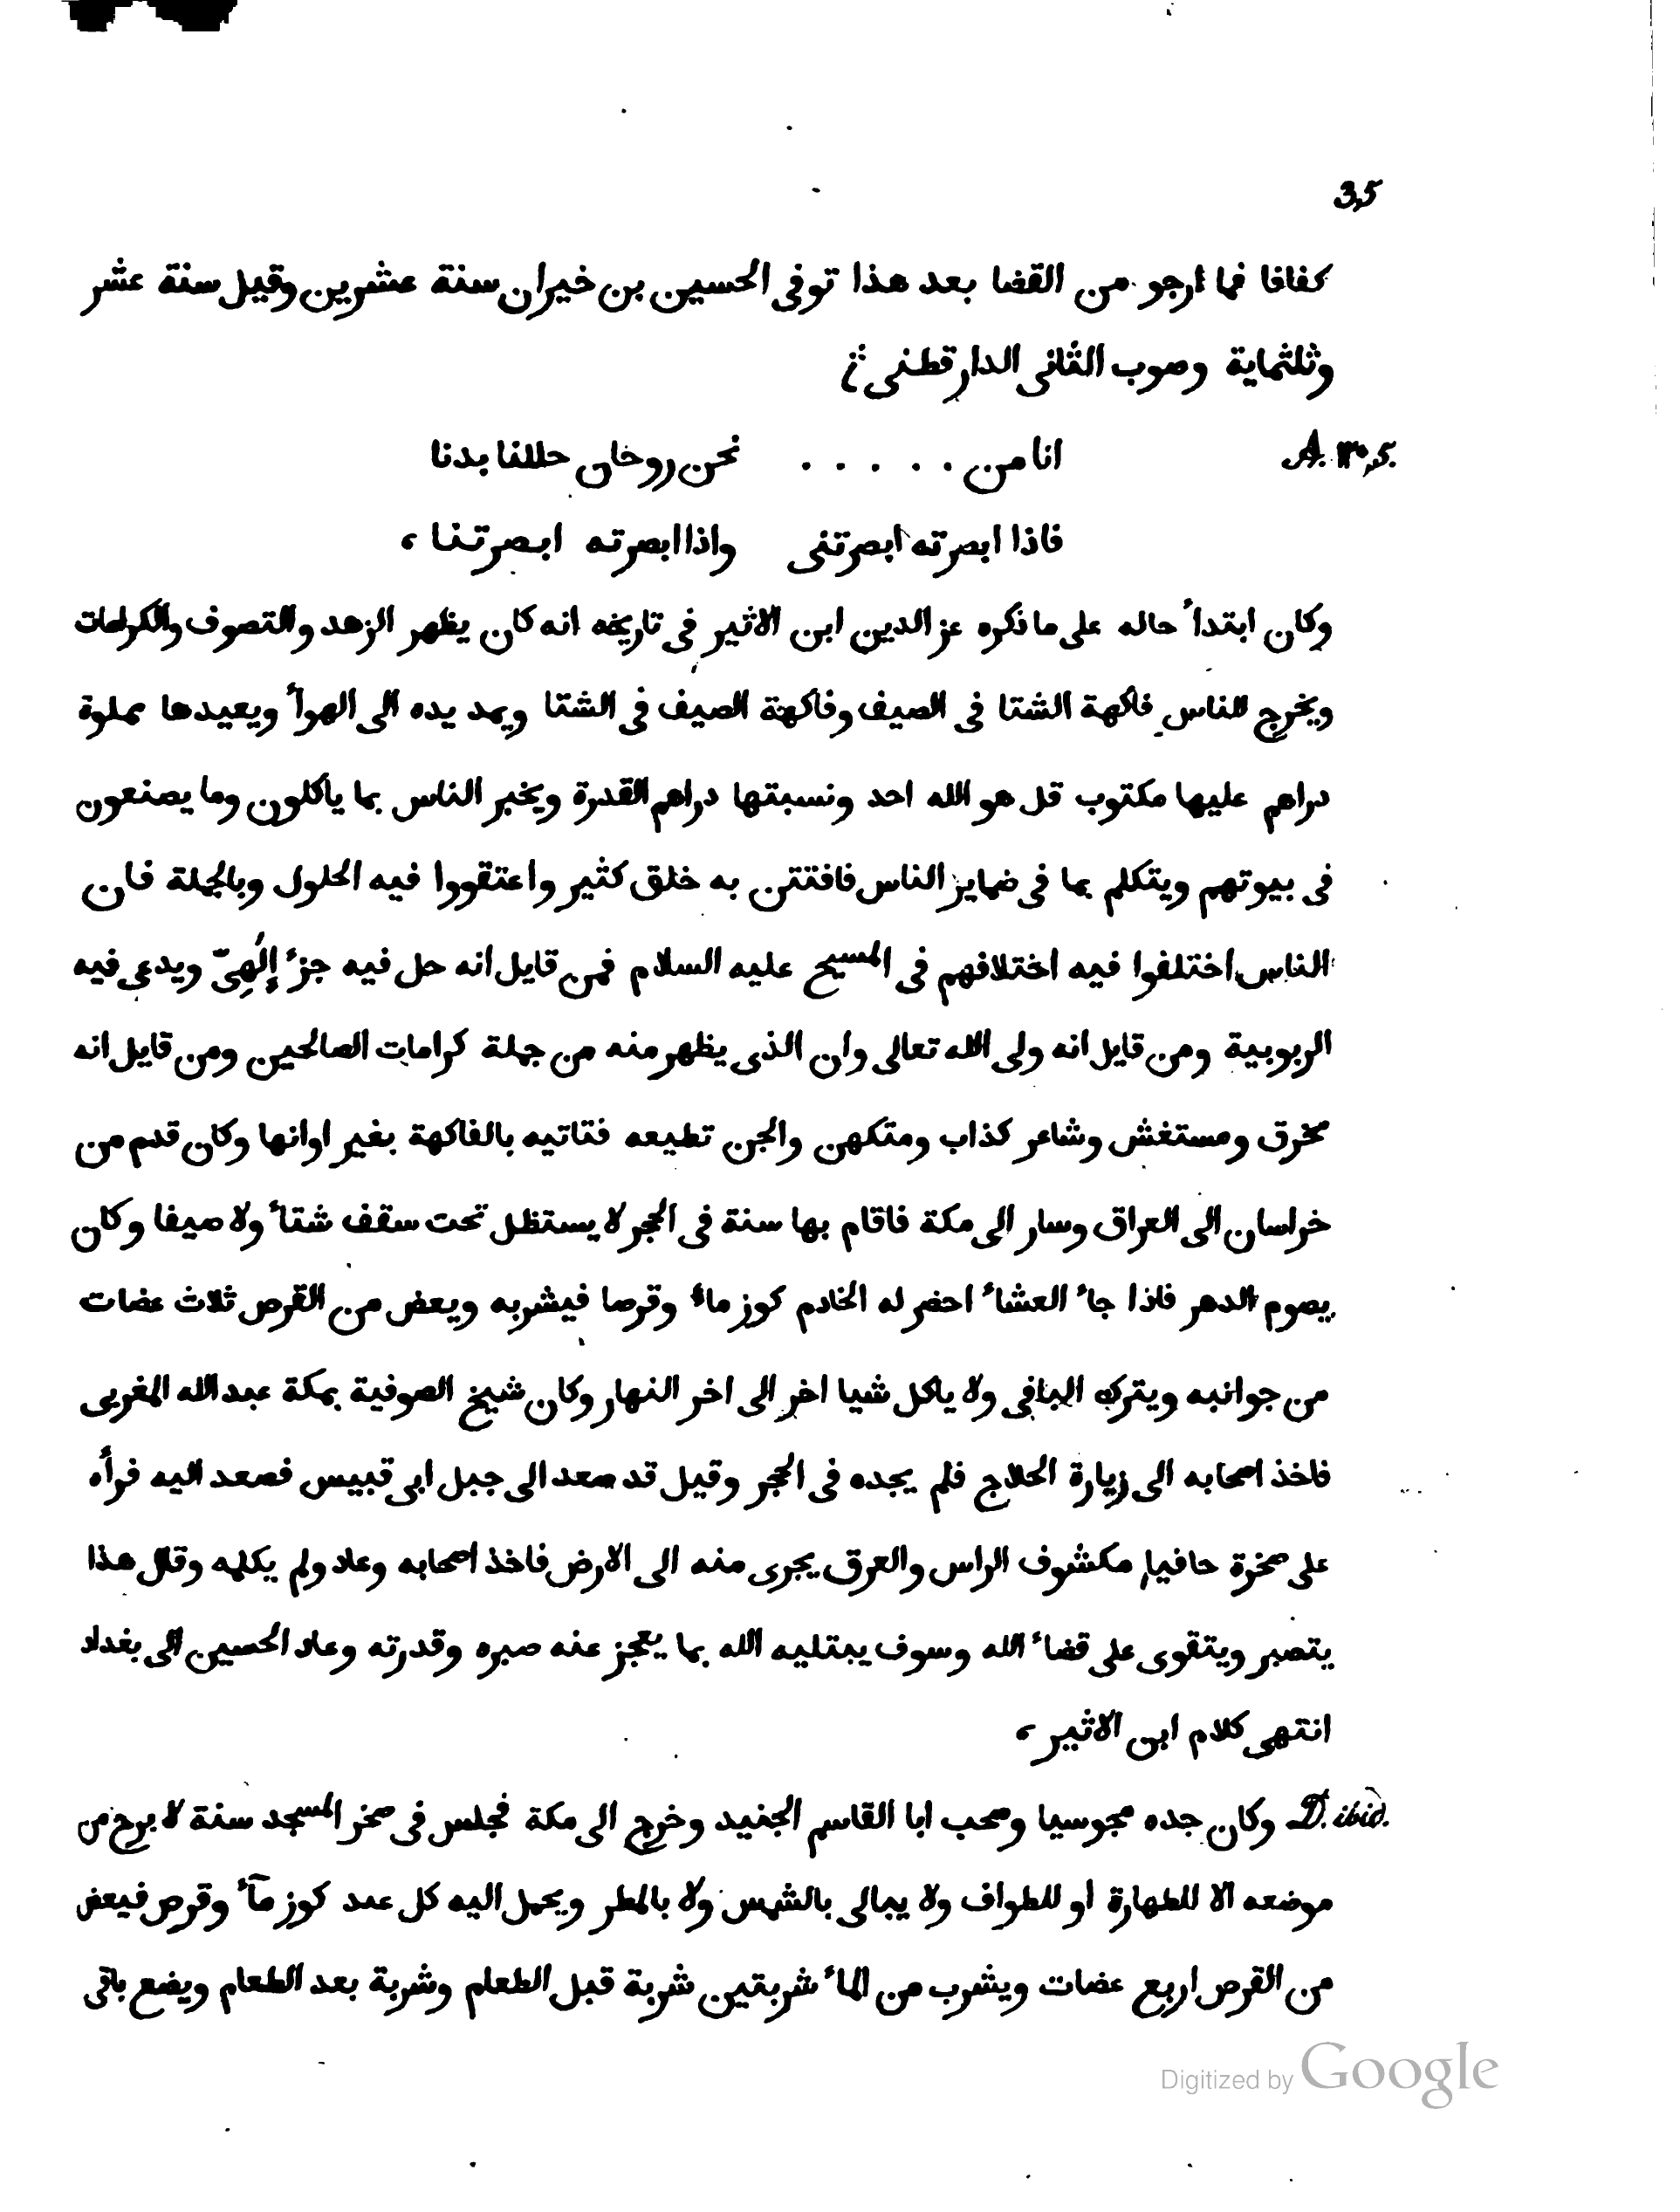 35
كفافا فما ارجو من القضا بعد هذا توفى الحسين بن خيران سنة عشرين وقيل سنة عشر
وثلثماية وصوب الثانى الدارقطنى
A. ٣٠٥. انا من . . . . . نحن روحان حللنا بدنا
فاذا ابصرته ابصرتنى واذا ابصرته ابصرتنا ،
وكان ابتدأ حاله على ما ذكره عز الدين ابن الاثير فى تاريخه انه كان يظهر الزهد والتصوف والكرامات
ويخرج للناس فاكهة الشتا فى الصيف وفاكهة الصيف فى الشتا ويمد يده الى الهوأ ويعيدها مملوة
دراهم عليها مكتوب قل هو الله احد ونسبتها دراهم القدرة ويخبر الناس بما ياكلون وما يصنعون
فى بيوتهم ويتكلم بما فى ضماير الناس فافتتن به خلق كثير واعتقووا فيه الحلول وبالجملة فان
الناس اختلفوا فيه اختلافهم فى المسيح عليه السلام فمن قايل انه حل فيه جزءُ إلٰهِىّ ويدعى فيه
الربوبية ومن قايل انه ولى الله تعالى وان الذى يظهر منه من جملة كرامات الصالحين ومن قايل انه
مخرق ومستغش وشاعر كذاب ومتكهن والجن تطيعه فتاتيه بالفاكهة بغير اوانها وكان قدم من
خراسان الى العراق وسار الى مكة فاقام بها سنة فى الحجر لا يستظل تحت سقف شتاء ولا صيفا وكان
يصوم الدهر فاذا جاء العشاء احضر له الخادم كوز ماء وقرصا فيشربه ويعض من القرص ثلاث عضات
من جوانبه ويترك الباقى ولا ياكل شيا اخر الى اخر النهار وكان شيخ الصوفية بمكة عبد الله المغربى
فاخذ اصحابه الى زيارة الحلاج فلم يجده فى الحجر وقيل قد صعد الى جبل ابى قبيس فصعد اليه فرأه
على صخرة حافيا مكشوف الراس والعرق يجرى منه الى الارض فاخذ اصحابه وعاد ولم يكلمه وقال هذا
يتصبر ويتقوى على قضاء الله وسوف يبتليه الله بما يعجز عنه صبره وقدرته وعاد الحسين الى بغداد
انتهى كلام ابن الاثير ،
D. ibid. وكان جده مجوسيا وصحب ابا القاسم الجنيد وخرج الى مكة فجلس فى صخر المسجد سنة لا برح من
موضعه الا للطهارة او للطواف ولا يبالى بالشمس ولا بالمطر ويحمل اليه كل عند كوز مآء وقرص فيعض
من القرص اربع عضات ويشرب من الماء شربتين شربة قبل الطعام وشربة بعد الطعام ويضع باقى
Digitized by Google